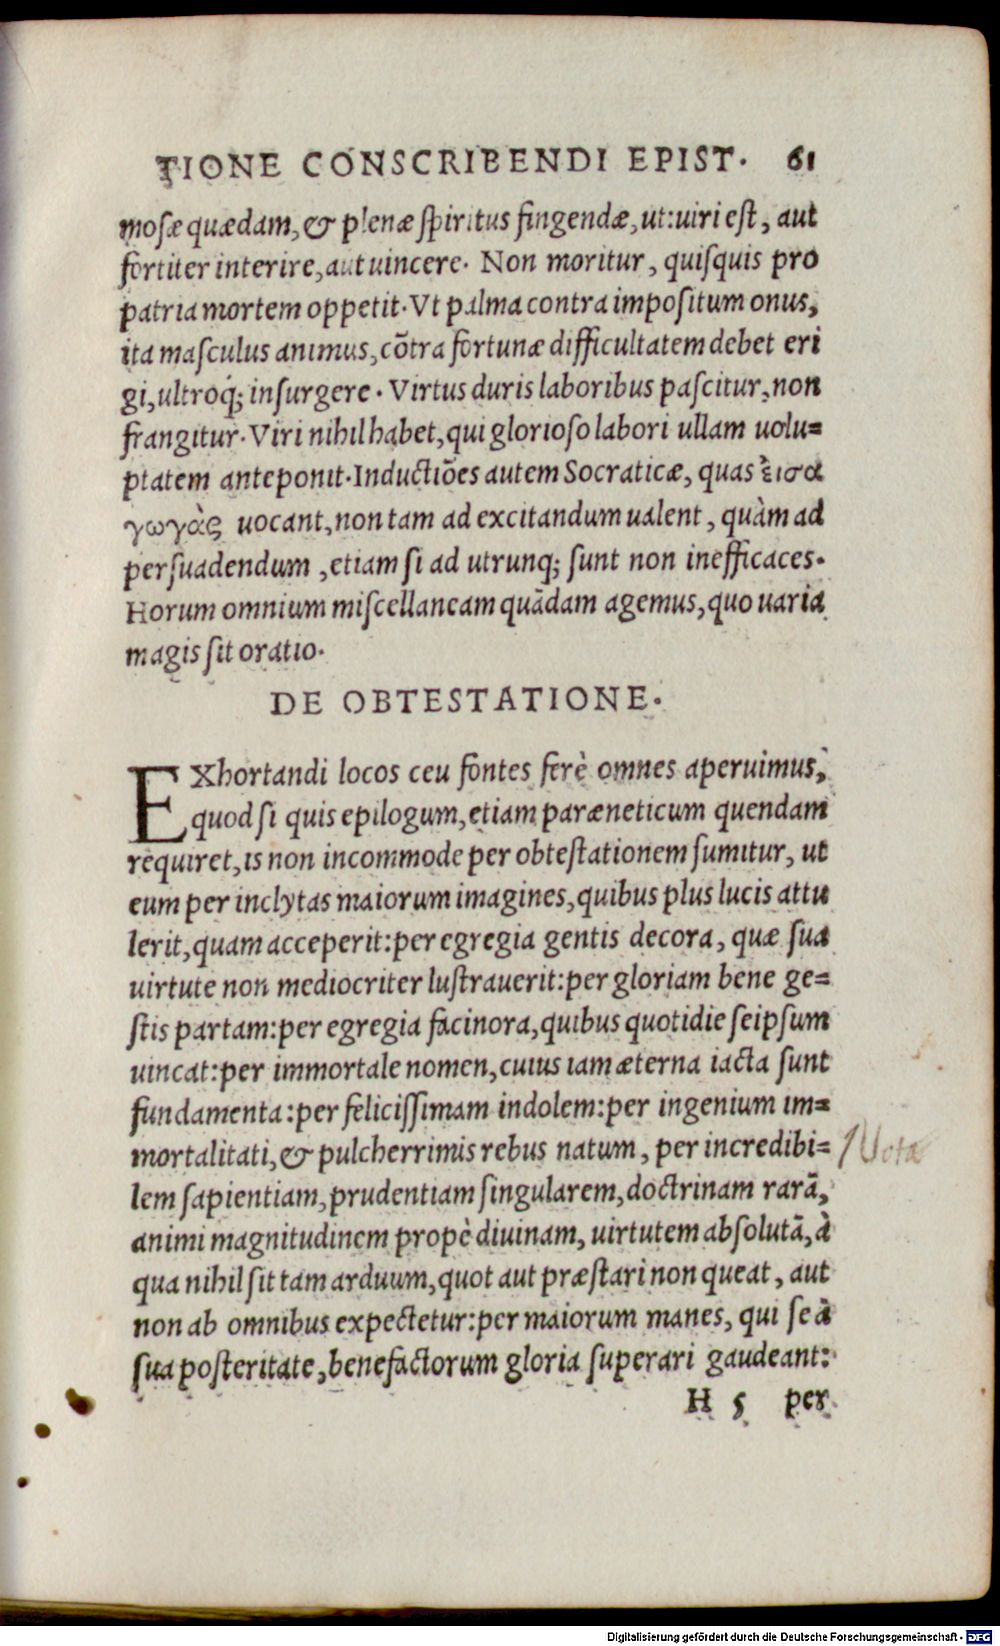 TIONE CONSCRIBENDI EPIST. 61
mosæ quædam, & plenæ spiritus fingendæ, ut: uiri est, aut
fortiter interire, aut uincere. Non moritur, quisquis pro
patria mortem oppetit. Vt palma contra impositum onus,
ita masculus animus, cõtra fortunæ difficultatem debet eri
gi, ultroq́; insurgere. Virtus duris laboribus pascitur, non
frangitur. Viri nihil habet, qui glorioso labori ullam uolu=
ptatem anteponit. Inductiões autem Socraticæ, quas ἐισα
γωγὰς uocant, non tam ad excitandum ualent, quàm ad
persuadendum, etiam si ad utrunq; sunt non inefficaces.
Horum omnium miscellaneam quãdam agemus, quo uaria
magis sit oratio.
DE OBTESTATIONE.
EXhortandi locos ceu fontes ferè omnes aperuimus,
quod si quis epilogum, etiam paræneticum quendam
requiret, is non incommode per obtestationem sumitur, ut
eum per inclytas maiorum imagines, quibus plus lucis attu
lerit, quam acceperit: per egregia gentis decora, quæ sua
uirtute non mediocriter lustrauerit: per gloriam bene ge=
stis partam: per egregia facinora, quibus quotidie seipsum
uincat: per immortale nomen, cuius iam æterna iacta sunt
fundamenta: per felicissimam indolem: per ingenium im=
mortalitati, & pulcherrimis rebus natum, per incredibi=
lem sapientiam, prudentiam singularem, doctrinam rarã,
animi magnitudinem propè diuinam, uirtutem absolutã, à
qua nihil sit tam arduum, quot aut præstari non queat, aut
non ab omnibus expectetur: per maiorum manes, qui se à
sua posteritate, benefactorum gloria superari gaudeant:
H 5 per
Nota
Digitalisierung gefördert durch die Deutsche Forschungsgemeinschaft - DFG